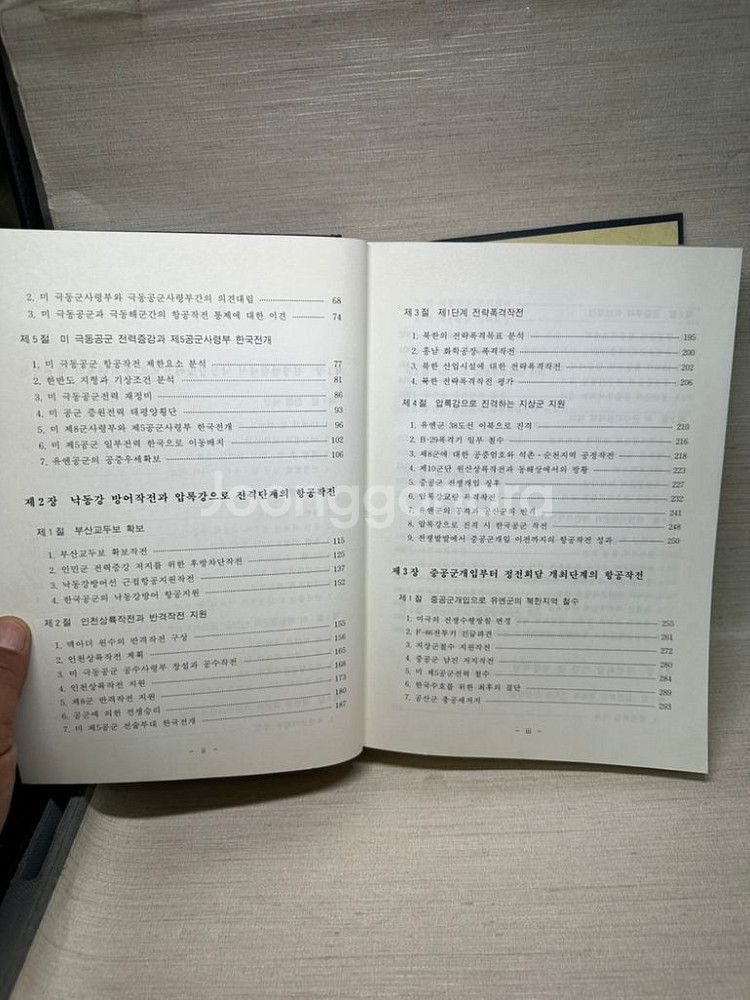 2. 미 극동군사령부와 극동공군사령부간의 의견대립 68
3. 미 극동공군과 극동해군간의 항공작전 통제에 대한 이견 74
제 5 절 미 극동공군 전력증강과 제5공군사령부 한국전개
1. 미 극동공군 항공작전 제한요소 분석 77
2. 한반도 지형과 기상조건 분석 81
3. 미 극동공군전력 재정비 86
4. 미 공군 증원전력 태평양횡단 93
5. 미 제8군사령부와 제5공군사령부 한국전개 96
6. 미 제5공군 일부전력 한국으로 이동배치 102
7. 유엔공군의 공중우세확보 106
제 2 장 낙동강 방어작전과 압록강으로 진격단계의 항공작전
제 1 절 부산교두보 확보
1. 부산교두보 확보작전 115
2. 인민군 전력증강 저지를 위한 후방차단작전 125
3. 낙동강방어선 근접항공지원작전 137
4. 한국공군의 낙동강방어 항공지원 152
제 2 절 인천상륙작전과 반격작전 지원
1. 맥아더 원수의 반격작전 구상 155
2. 인천상륙작전 계획 156
3. 미 극동공군 공수사령부 창설과 공수작전 165
4. 인천상륙작전 지원 168
5. 제8군 반격작전 지원 173
6. 공군에 의한 전쟁승리 180
7. 미 제5공군 전술부대 한국전개 187
- ii -
제 3 절 제1단계 전략폭격작전
1. 북한의 전략폭격목표 분석 195
2. 흥남 화학공장 폭격작전 200
3. 북한 산업시설에 대한 전략폭격작전 202
4. 북한 전략폭격작전 평가 206
제 4 절 압록강으로 진격하는 지상군 지원
1. 유엔군 38도선 이북으로 진격 210
2. B-29폭격기 일부 철수 216
3. 제8군에 대한 공중엄호와 숙촌·순천지역 공정작전 218
4. 제10군단 원산상륙작전과 동해상에서의 방황 223
5. 중공군 전쟁개입 징후 227
6. 압록강교량 폭격작전 232
7. 유엔군의 공격과 공산군의 반격 241
8. 압록강으로 진격 시 한국공군 작전 248
9. 전쟁발발에서 중공군개입 이전까지의 항공작전 성과 250
제 3 장 중공군개입부터 정전회담 개최단계의 항공작전
제 1 절 중공군개입으로 유엔군의 북한지역 철수
1. 미국의 전쟁수행방침 변경 255
2. F-86전투기 긴급파견 261
3. 지상군철수 지원작전 272
4. 중공군 남진 저지작전 280
5. 미 제5공군전력 철수 284
6. 한국수호를 위한 최후의 결단 289
7. 공산군 총공세저지 293
- iii -